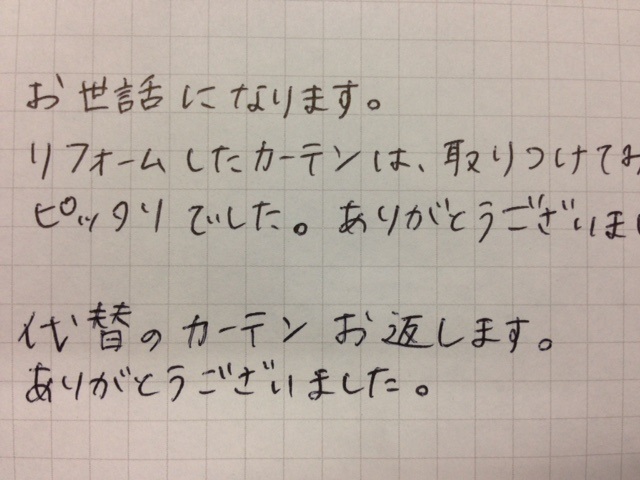 お世話になります。
リフォームしたカーテンは、取りつけてみ
ピッタリでした。ありがとうございまし
代替のカーテンお返しします。
ありがとうございました。